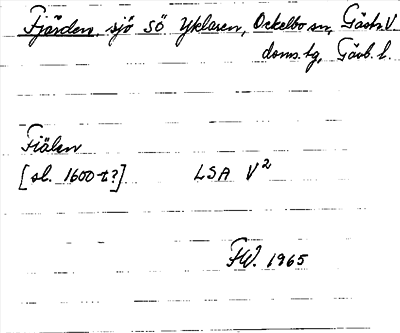 Fjärden, sjö SÖ Yklaren, Ockelbo sn, Gästr. V.
doms. tg, Gävb. l.
Fiälen
[sl. 1600-t?] LSA V²
FW. 1965